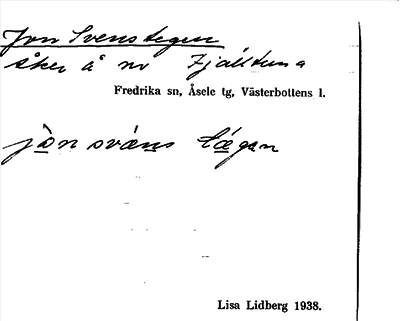 Jon Svenstegen
åker å nr Fjälltuna
Fredrika sn, Åsele tg, Västerbottens l.
jòn svàns tǽgan
Lisa Lidberg 1938.